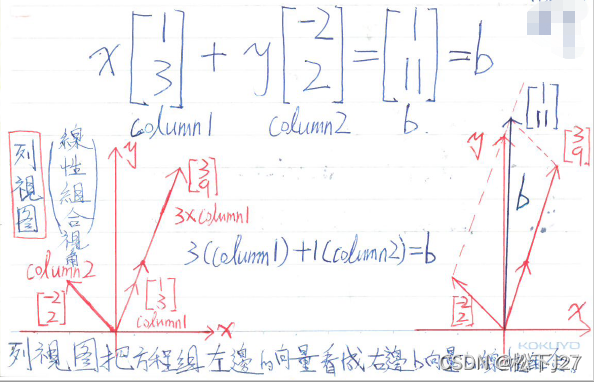 x[1 3] + y[-2 2] = [1 11] = b
column1 column2 b.
列視图
(線性組合視角)
y
[3 9]
3×column1
3(column1)+1(column2)=b
column2
[-2 2]
[1 3]
column1
x
[1 11]
y
[3 9]
b
[-2 2]
x
KOKUYO
列視图把方程組左邊的向量看成右邊b向量
CSDN @松下J27